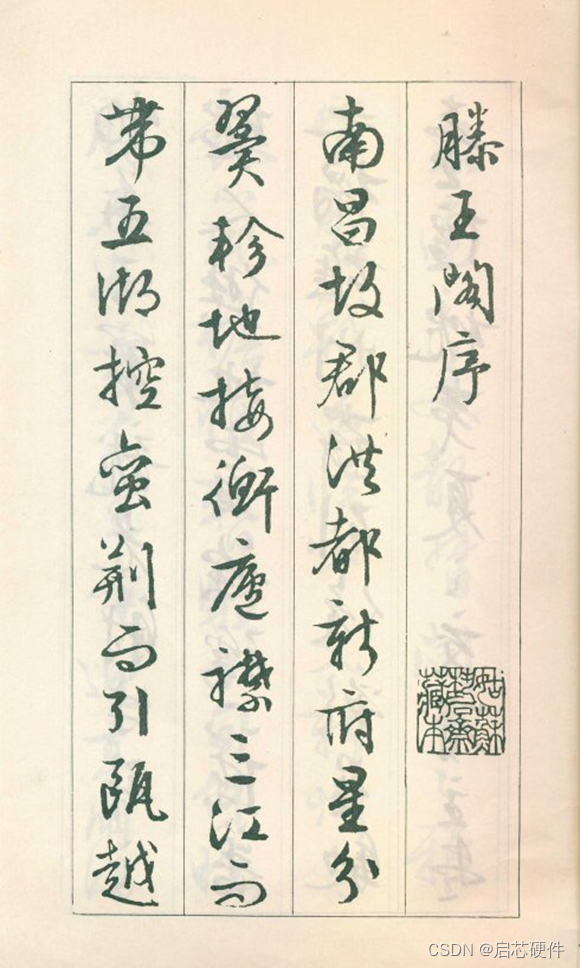 滕王閣序
南昌故郡洪都新府星分
翼軫地接衡廬襟三江而
帶五湖控蛮荆而引甌越
姑蘇
藏本
CSDN @启芯硬件